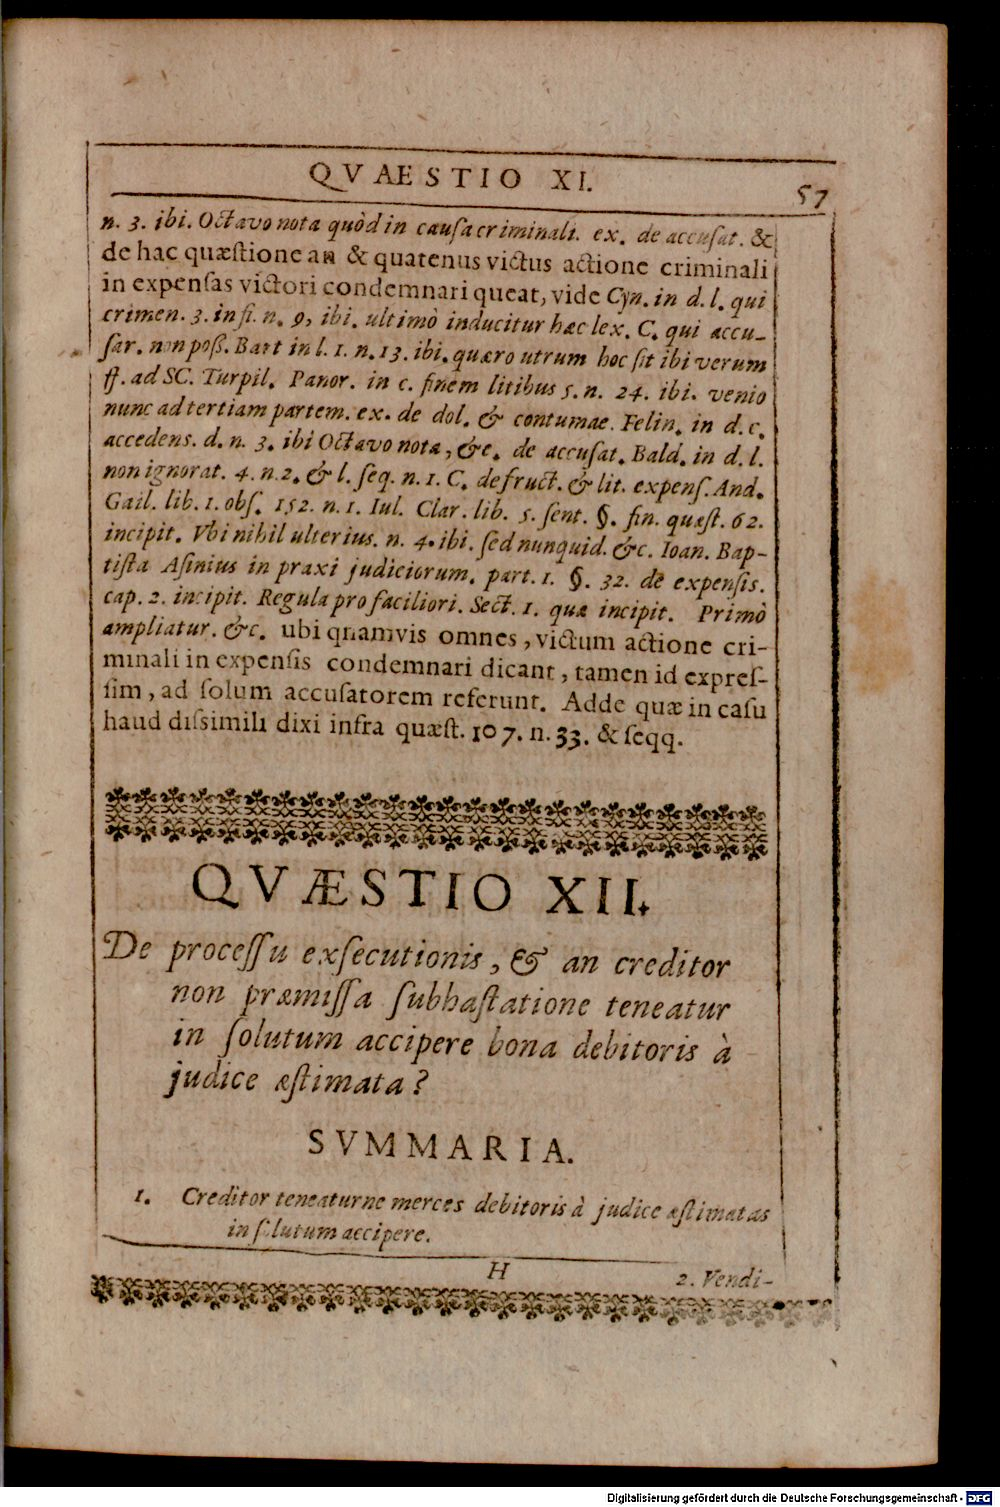 QVAESTIO XI. 57
n. 3. ibi. Octavo nota quòd in causa criminali. ex. de accusat. &
de hac quæstione an & quatenus victus actione criminali
in expensas victori condemnari queat, vide Cyn. in d. l. qui
crimen. 3. in fi. n. 9, ibi. ultimò inducitur hæc lex. C. qui accu-
sar. non poß. Bart in l. 1. n. 13. ibi. quæro utrum hoc sit ibi verum
ff. ad SC. Turpil. Panor. in c. finem litibus 5. n. 24. ibi. venio
nunc ad tertiam partem. ex. de dol. & contumae. Felin. in d. c.
accedens. d. n. 3. ibi Octavo nota, &c. de accusat. Bald. in d. l.
non ignorat. 4. n. 2. & l. seq. n. 1. C. de fruct. & lit. expens. And.
Gail. lib. 1. obs. 152. n. 1. Iul. Clar. lib. 5. sent. §. fin. quæst. 62.
incipit. Vbi nihil ulterius. n. 4. ibi. sed nunquid. &c. Ioan. Bap-
tista Asinius in praxi judiciorum. part. 1. §. 32. de expensis.
cap. 2. incipit. Regula pro faciliori. Sect. 1. quæ incipit. Primò
ampliatur. &c. ubi quamvis omnes, victum actione cri-
minali in expensis condemnari dicant, tamen id expres-
sim, ad solum accusatorem referunt. Adde quæ in casu
haud dissimili dixi infra quæst. 107. n. 33. & seqq.
QVÆSTIO XII.
De processu exsecutionis, & an creditor
non præmissa subhastatione teneatur
in solutum accipere bona debitoris à
judice æstimata?
SVMMARIA.
1. Creditor teneaturne merces debitoris à judice æstimatas
in solutum accipere.
H 2. Vendi-
Digitalisierung gefördert durch die Deutsche Forschungsgemeinschaft - DFG